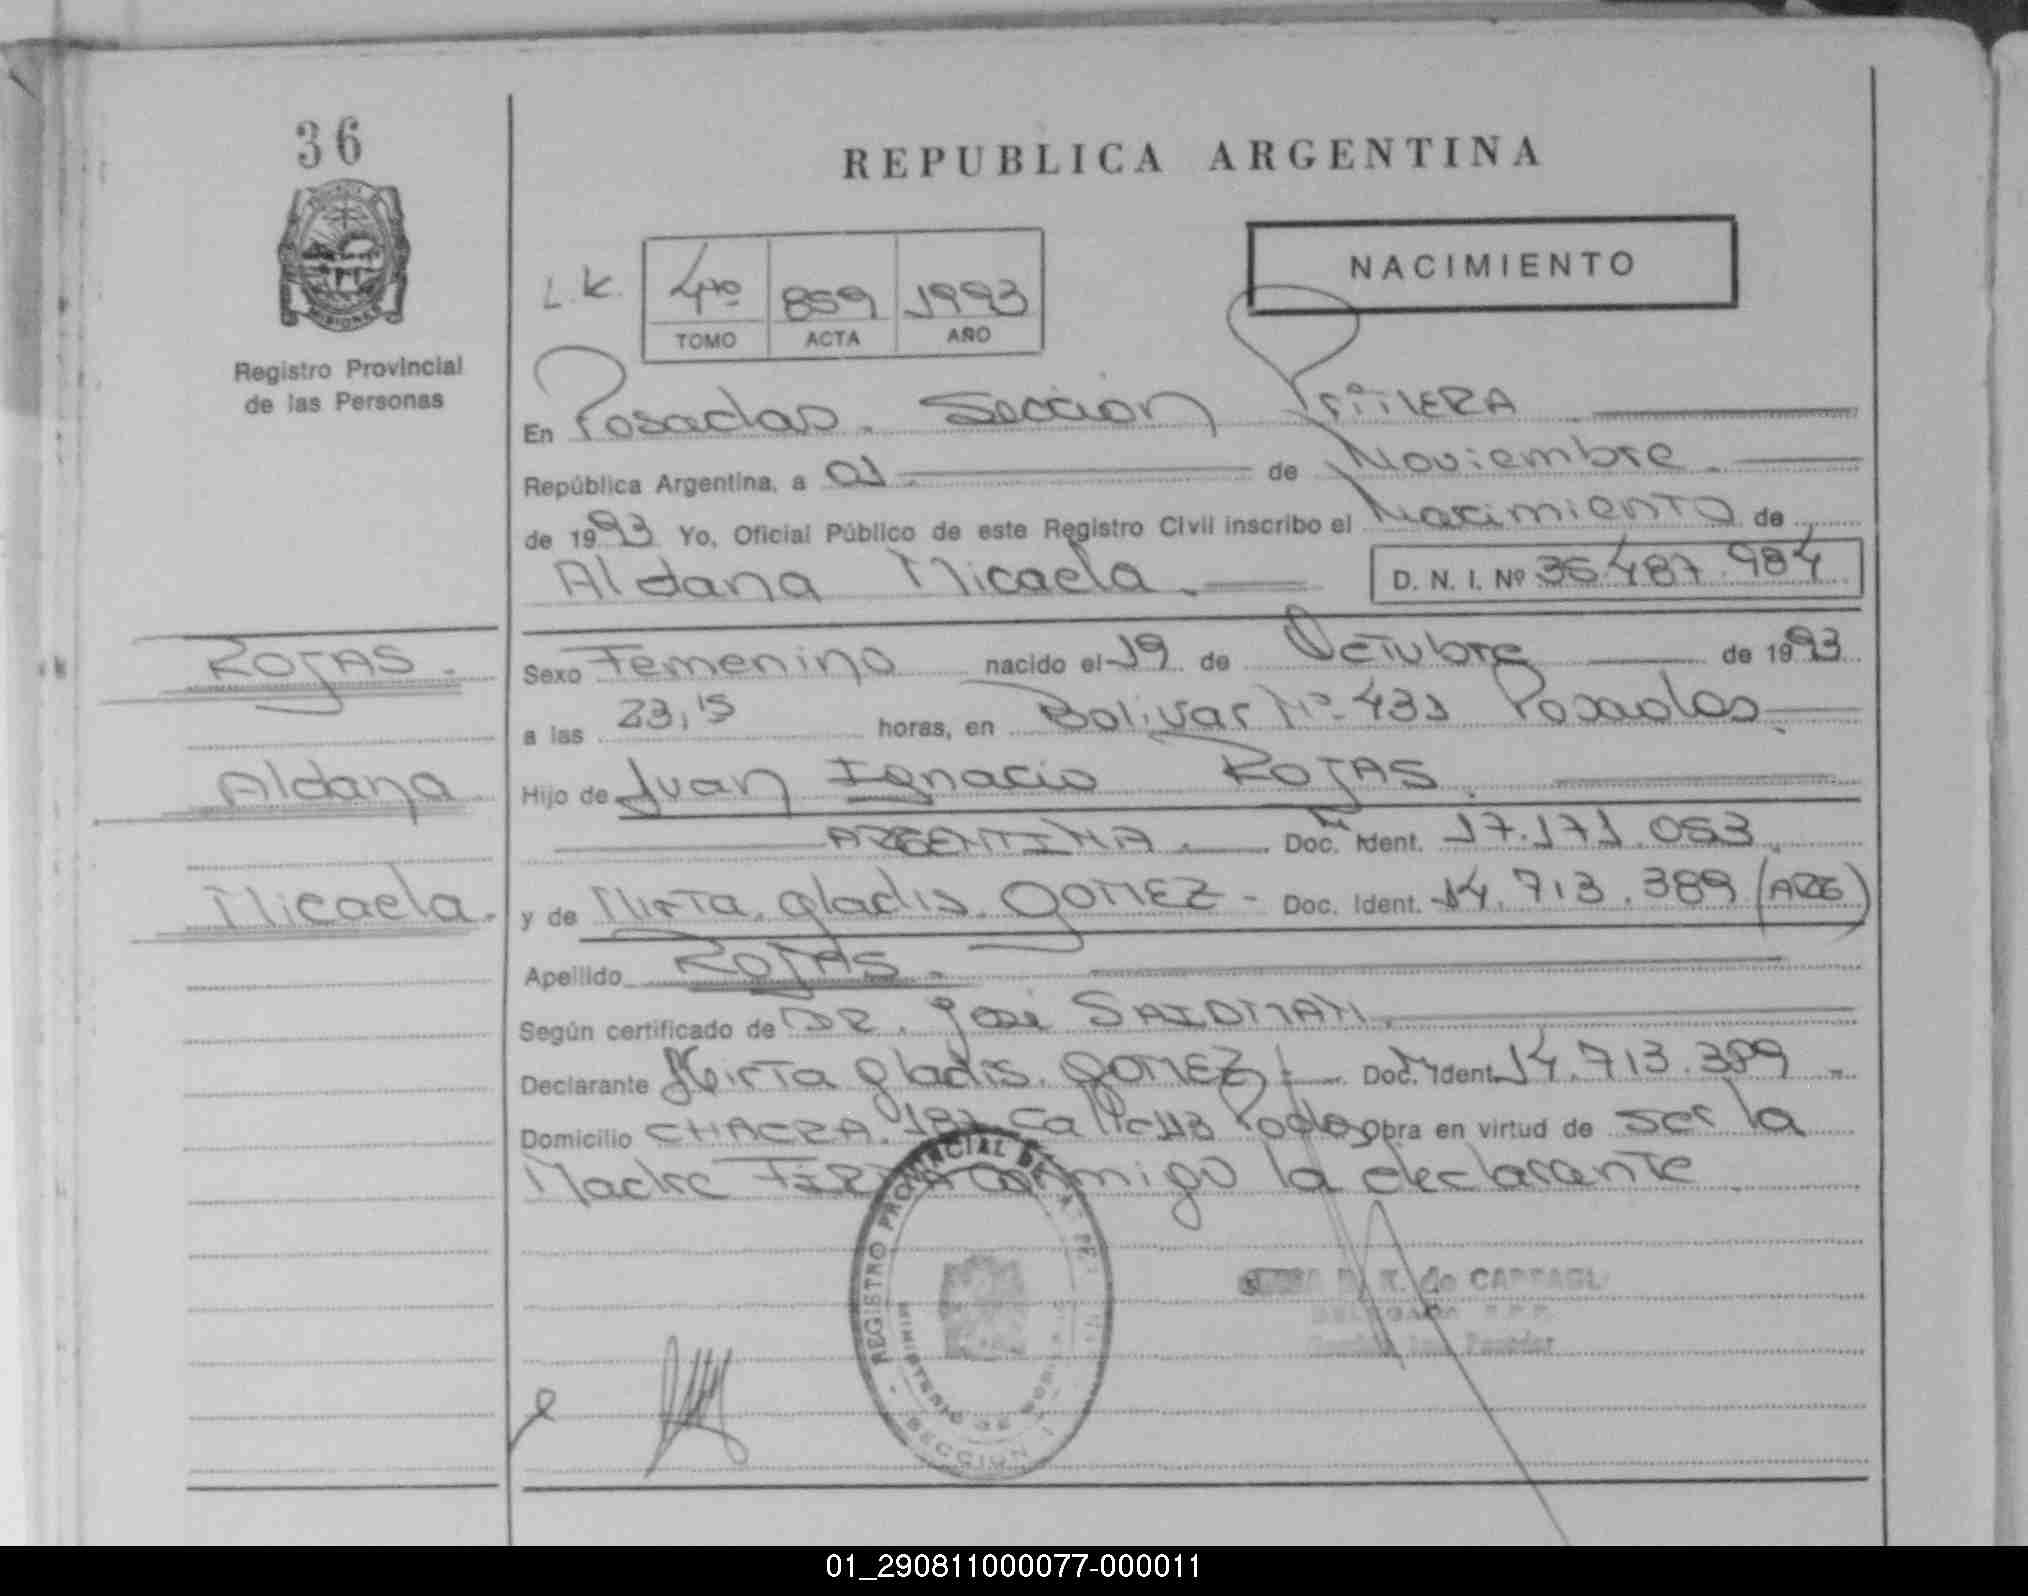 36
REPUBLICA ARGENTINA
MISIONES
Registro Provincial
de las Personas
L.K. 4to 859 1993
TOMO ACTA AÑO
NACIMIENTO
En Posadas. Sección Primera
República Argentina, a 01 de Noviembre
de 1993 Yo, Oficial Público de este Registro Civil inscribo el Nacimiento de
Aldana Micaela. D. N. I. Nº 36.487.984
ROJAS.
Aldana
Micaela.
Sexo Femenino nacido el 19 de Octubre de 1993
a las 23,15 horas, en Bolivar Nº 431 Posadas.
Hijo de Juan Ignacio ROJAS.
ARGENTINA. Doc. Ident. 17.171.053.
y de Mirta gladis GOMEZ - Doc. Ident. 14.713.389 (ARG)
Apellido ROJAS.
Según certificado de DR. José SAIDMAN.
Declarante Mirta gladis. GOMEZ Doc. Ident. 14.713.389
Domicilio CHACRA 181 Obra en virtud de ser la
Madre FIRMA conmigo la declarante.
REGISTRO PROVINCIAL DE
MINISTERIO DE
SECCION 1
de
DELEGADA
01_290811000077-000011